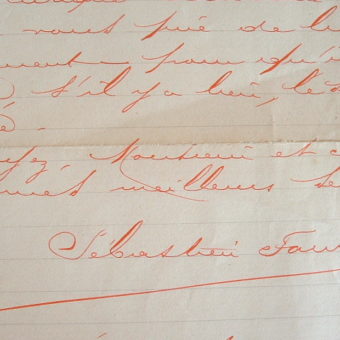 vous prié de l
ment - pour qu'i
s'il y a lieu, les
é.
yez, Monsieur et c
mes meilleurs se
Sébastien Faur